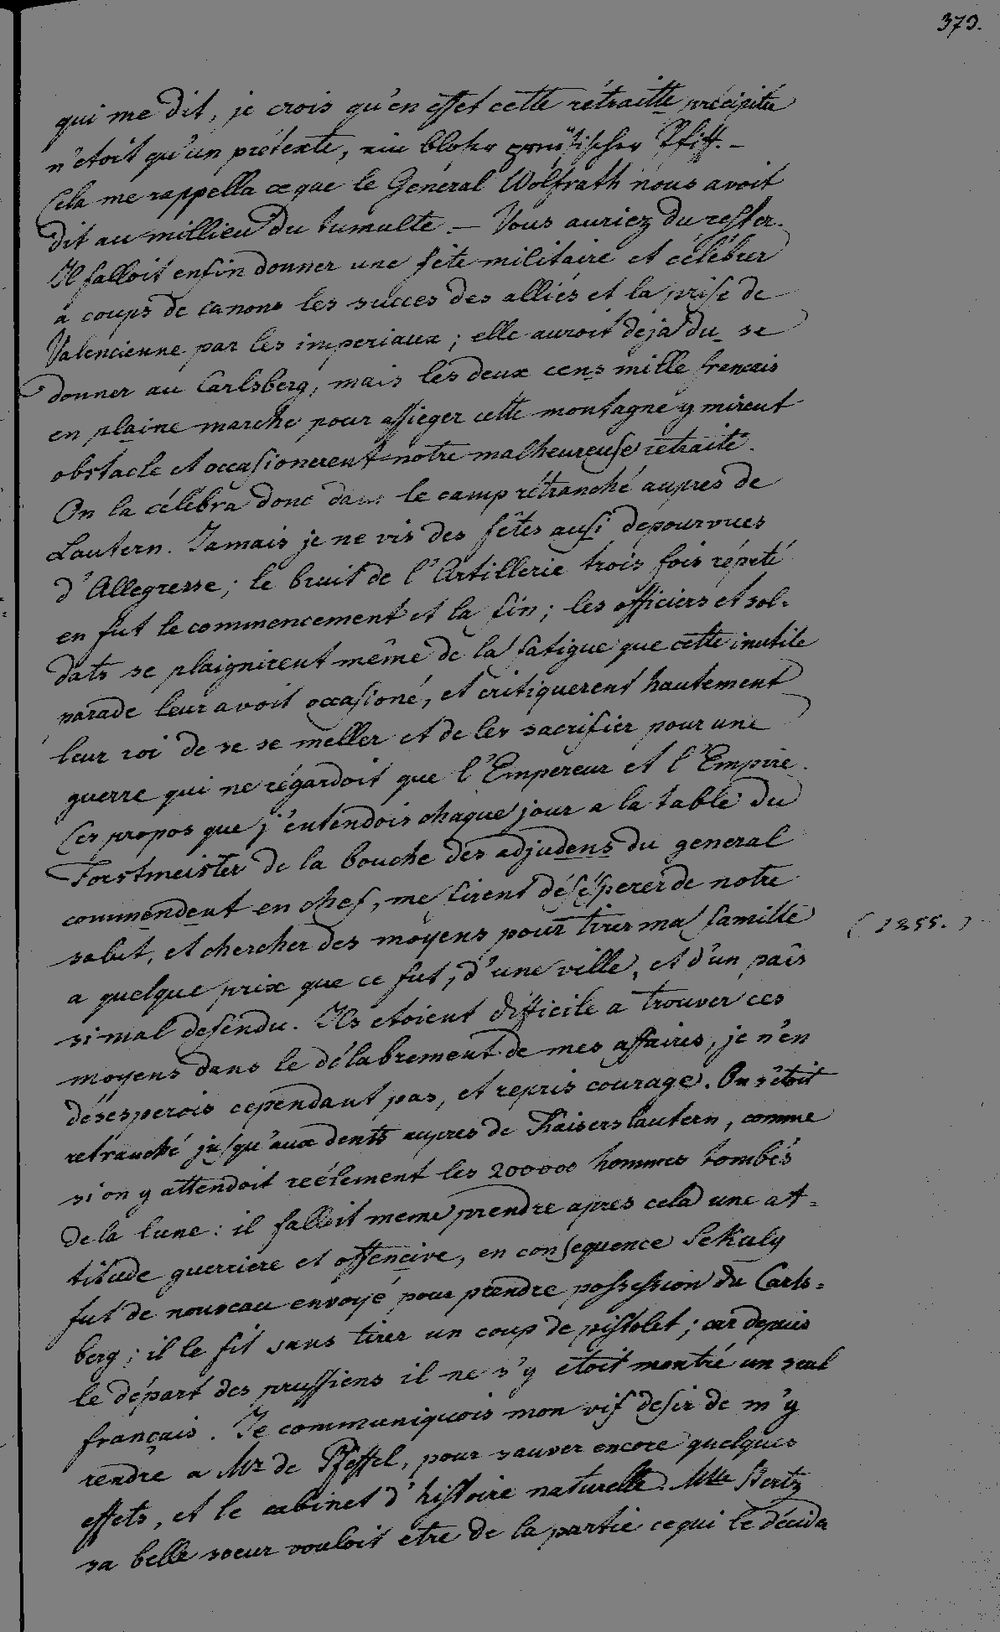 373.
qui me dit, je crois qu'en effet cette rétraitte précipitée
n'etoit qu'un prétexte, ein bloser preüsischer Pfiff. —
Cela me rappella ce que le General Wolfrath nous avoit
dit au millieu du tumulte. — Vous auriez du rester.
Il falloit enfin donner une fête militaire et célébrer
a coups de canons les succes des alliés et la prise de
Valencienne par les imperiaux; elle auroit déja du se
donner au Carlsberg, mais les deux cens mille francais
en plaine marche pour assieger cette montagne y mirent
obstacle et occasionerent notre malheureuse retraite.
On la célébra donc dans le camp rétranché aupres de
Lautern. Jamais je ne vis des fêtes ausi depourvues
d'Allegresse; le bruit de l'Artillerie trois fois répeté
en fut le commencement et la fin; les officiers et sol-
dats se plaignirent même de la fatigue que cette inutile
parade leur avoit occasioné, et critiquerent hautement
leur roi de se se meller et de les sacrifier pour une
guerre qui ne régardoit que l'Empereur et l'Empire.
Ces propos que j'entendois chaque jour a la table du
Forstmeister de la bouche des adjudens du general
commendent en chef, me firent déséperer de notre
salut, et chercher des moyens pour tirer ma famille
(1255.)
a quelque prix que ce fut, d'une ville, et d'un païs
si mal defendu. Ils etoient difficile a trouver ces
moyens dans le délabrement de mes affaires, je n'en
désesperois cependant pas, et repris courage. On s'étoit
retranché jusqu'aux dents aupres de Kaiserslautern, comme
si on y attendoit reélement les 200000 hommes tombés
de la lune: il falloit meme prendre apres cela une at-
titude guerriere et offencive, en consequence Sekuly
fut de nouveau envoyé pour prendre possession du Carls-
berg; il le fit sans tirer un coup de pistolet; car depuis
le départ des prussiens il ne s'y etoit montré un seul
français. Je communiquois mon vif desir de m'y
rendre a Mr de Pfeffel, pour sauver encore quelques
effets, et le cabinet d'histoire naturelle. Mlle Bertz
sa belle soeur vouloit etre de la partie ce qui le décida